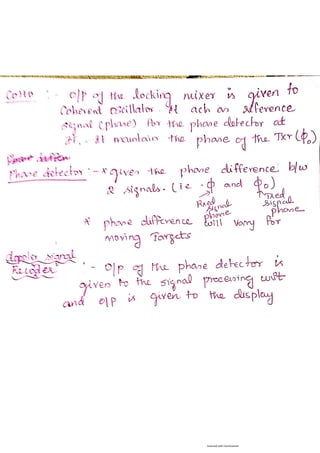 COHO :- O/P of the locking mixer is given to
Coherent oscillator. It ach as reference
signal (phase) for the phase detector at
If. It maintain the phase of the Txr (ϕ₀)
Phase detector :- * given the phase difference b/w
2 signals. (i.e ϕ and ϕ₀)
Rxed signal phase
Txed signal phase
* phase difference will vary for
moving Targets
signal
Recoder :- O/p of the phase detector is
given to the signal processing unit
and O/P is given to the display
Scanned with CamScanner